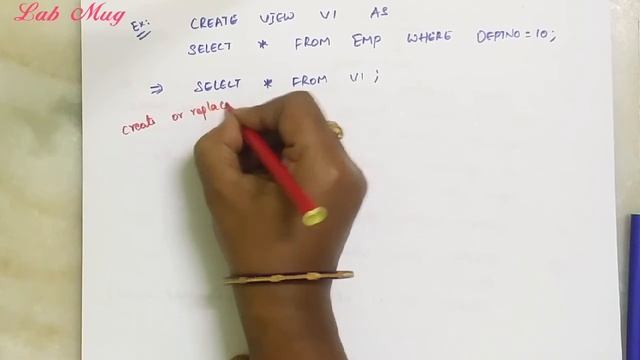 Lab Mug
Ex: CREATE VIEW V1 AS
SELECT * FROM EMP WHERE DEPTNO = 10;
⇒ SELECT * FROM V1 ;
create or replac